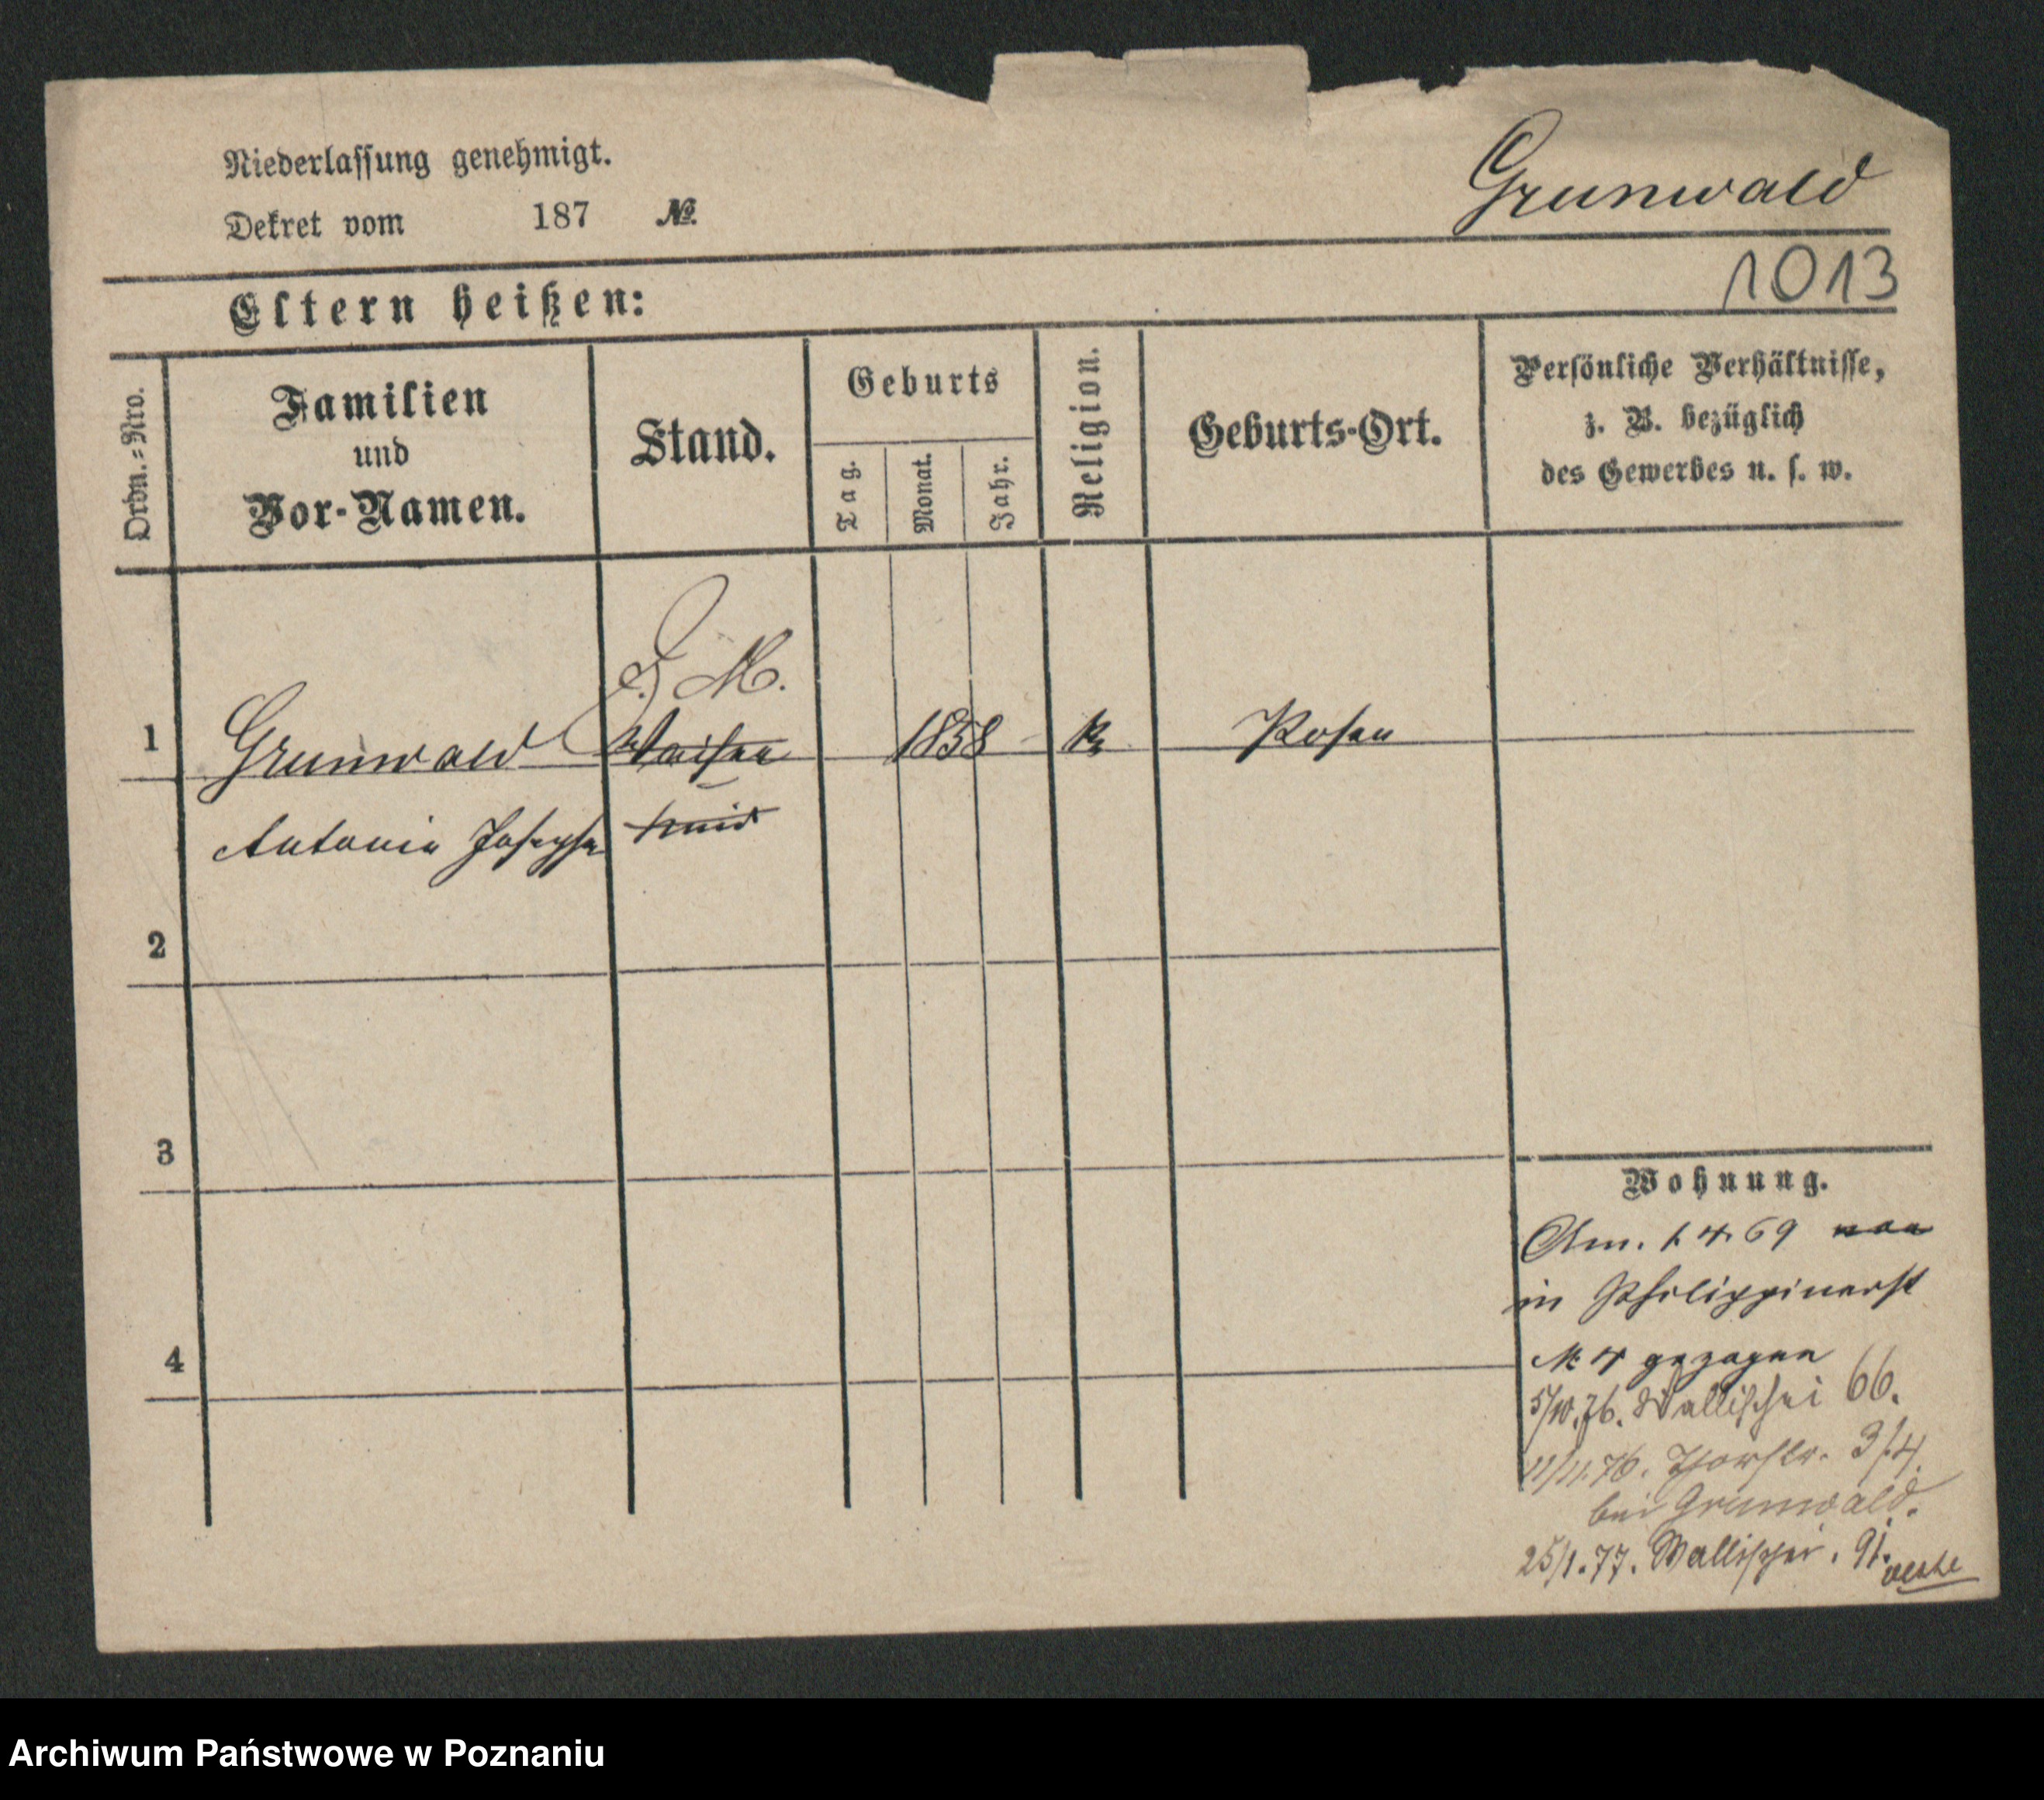 Niederlassung genehmigt.
Dekret vom 187 №
Grunwald
1013
Eltern heißen:
Ordn.-Nro.
Familien
und
Vor-Namen.
Stand.
Geburts
Tag.
Monat.
Jahr.
Religion.
Geburts-Ort.
Persönliche Verhältnisse,
z. B. bezüglich
des Gewerbes u. s. w.
D. M.
1 Grunwald Waisen 1858 k Posen
Antonia Josepha kind
2
3
4
Wohnung.
Am. 1.4.69
in Philippinerst
№ 4 gezogen
5/10.76. Wallischei 66.
11/11.76. Thorstr. 3/4.
bei Grunwald.
25/1.77. Wallischei. 91.
Archiwum Państwowe w Poznaniu